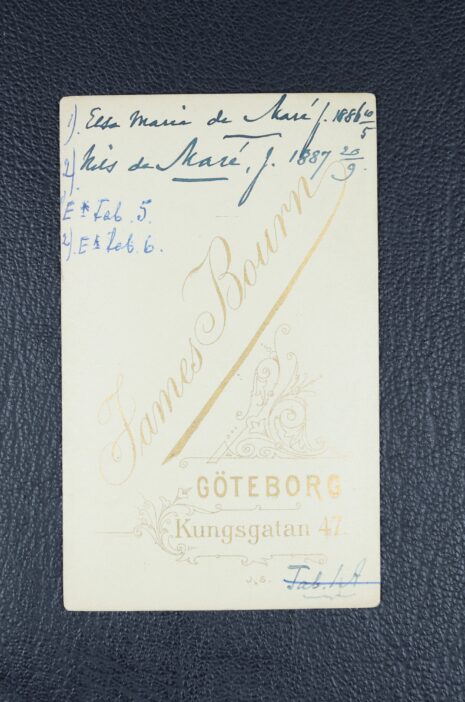 1). Elsa Maria de Maré f. 1886 10/5
2). Nils de Maré, f. 1887 20/9.
1). Ex Tab. 5.
2). Ex Tab. 6.
James Bourn
GÖTEBORG
Kungsgatan 47.
Tab. 1A